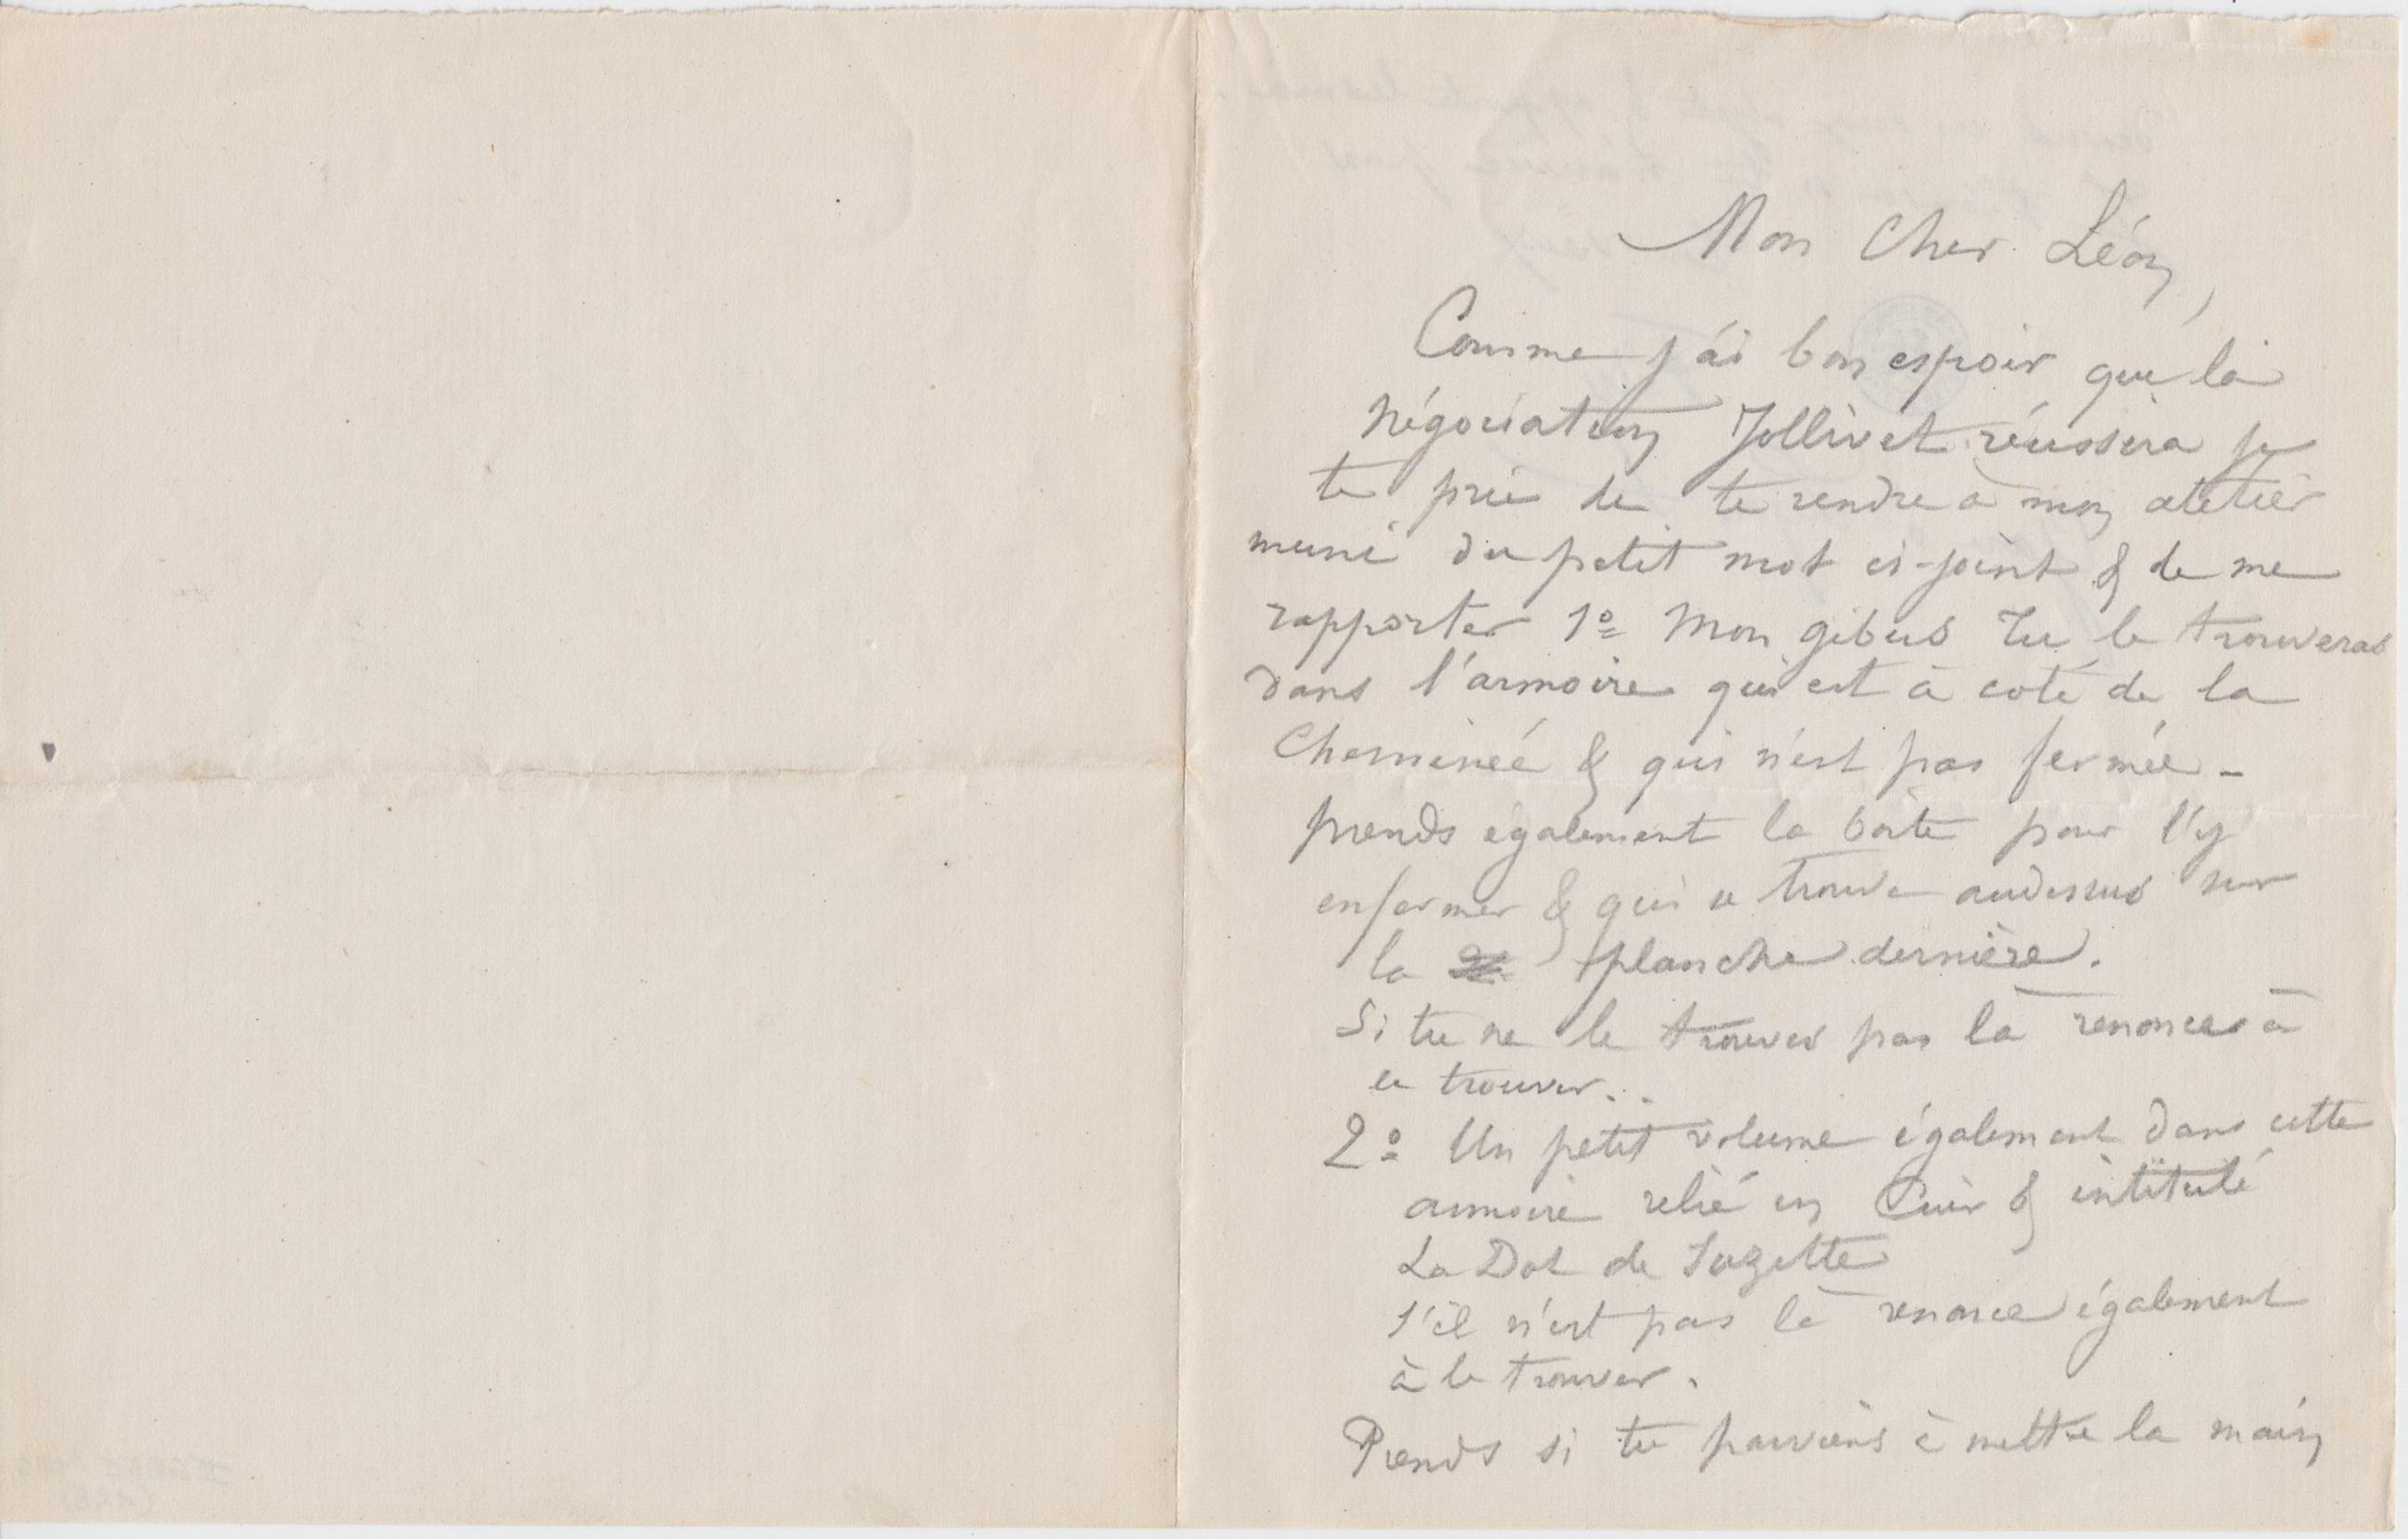 Mon Cher Léon,
Comme j'ai bon espoir que la
Négociation Jollivet réussira je
te prie de te rendre à mon atelier
muni du petit mot ci-joint & de me
rapporter 1º Mon gibus Tu le trouveras
dans l'armoire qui est à coté de la
Cheminée & qui n'est pas fermée -
prends également la boite pour l'y
enfermer & qui se trouve audessus sur
la planche dernière.
Si tu ne le trouves pas là renonces à
le trouver...
2º Un petit volume également dans cette
armoire relié en Cuir & intitulé
La Dot de Suzette
S'il n'est pas là renonce également
à le trouver.
Prends si tu parviens à mettre la main